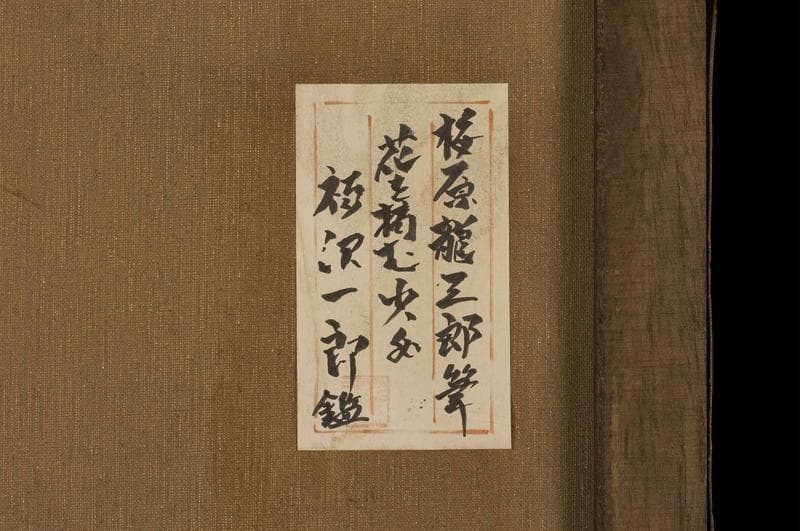 梅原龍三郎筆
花を摘む少女
福沢一郎鑑